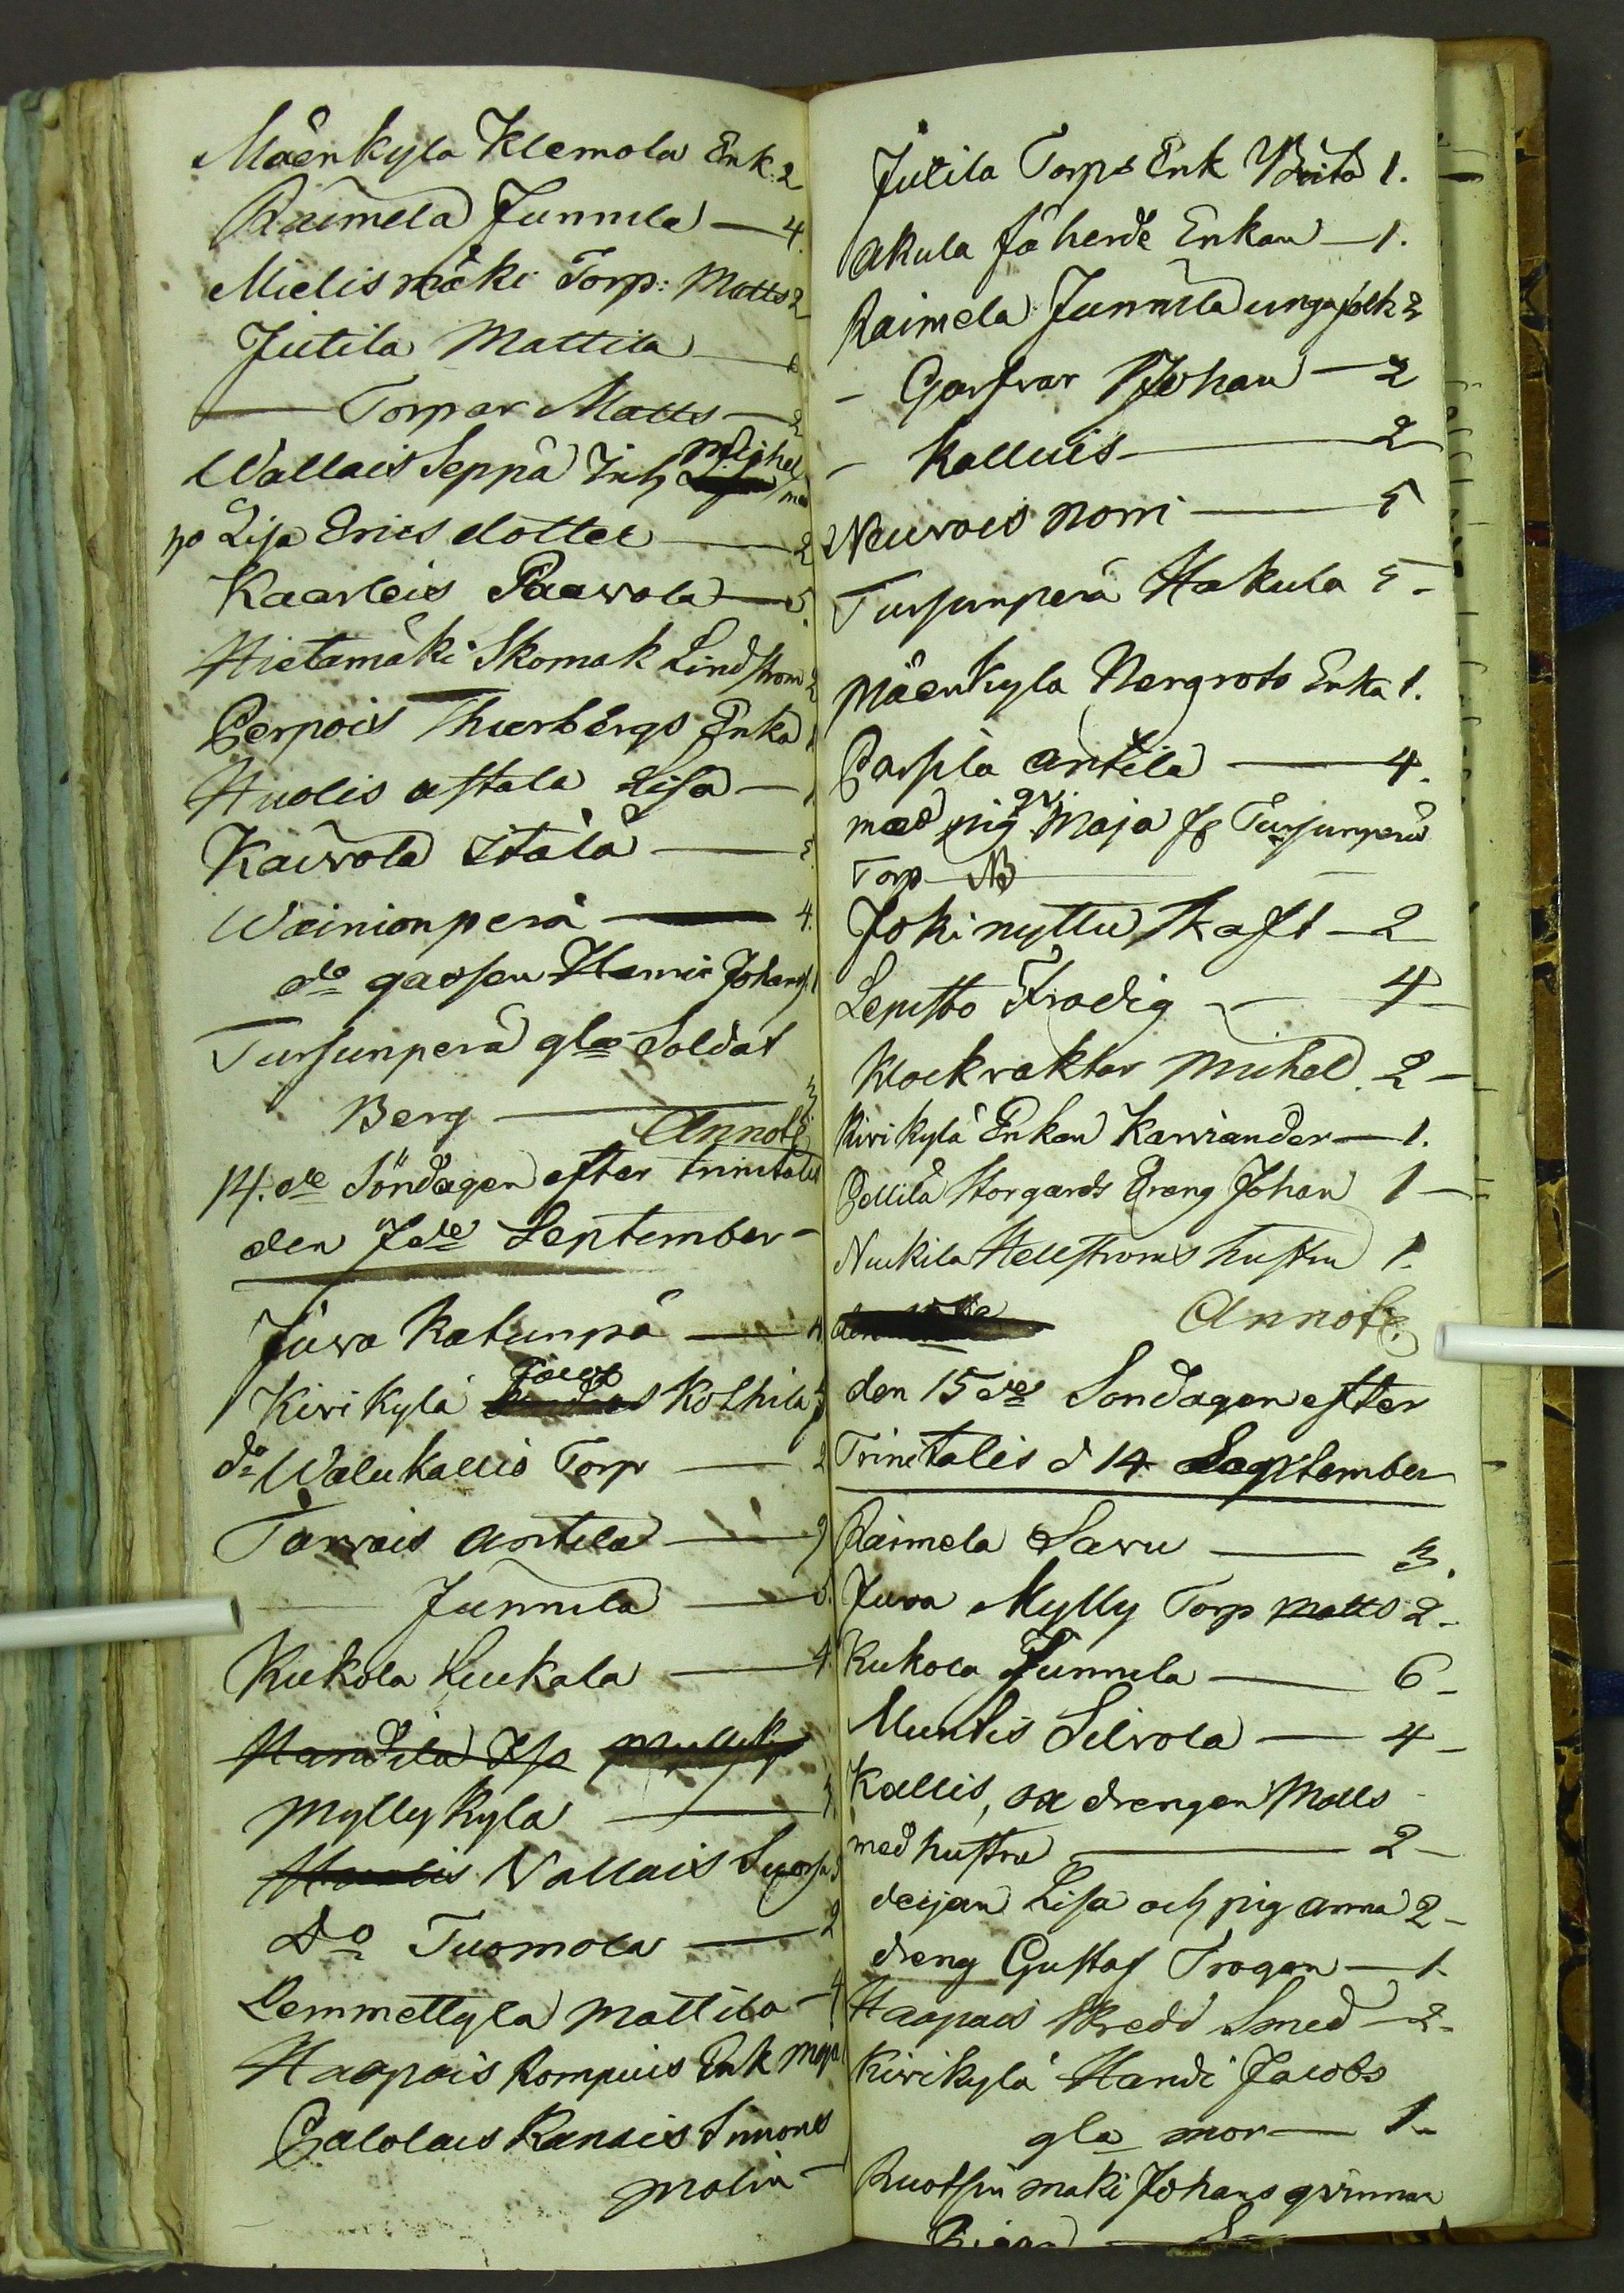 Mäenkyla Klemola Enk. 2
Raimela Junnila — 4.
Mielismäki Torp: Matts 2
Jutila Mattila —
— Torpar Matts — 2
Wallais Seppä Inh Mighel
no Lisa Ericsdotter — 2
Kaarleis Paavola — 5.
Hietamäki Skomak Lindstrom 2
Perpois Thurbergs Enka 1
Huolis Astala Lisa — 1.
Kaivola Itälä —
Wainionperä — 4.
do gassen Henric Johans. 1
Tursunperä gla Soldat
Berg — 3
Annote
14.de Söndagen efter trinitatis
den 7de September —
Juva Katunpä — 4
Kirikylä Jacob Kolhila
do Walukallio Torp — 2
Tarvais Antila — 9
— Junnila — 5.
Kukola Kukala — 4.
Handila
Myllykyla —
Vallais Suorsa
Do Tuomola — 2
Lemmettyla Mattila — 4
Haapais Rompuis Enk Maja
Palolais Kanais Simons
Malin —
Jutila Torps Enk Brita 1.
Akula fäherde Enkan — 1.
Raimela Junnila unga folk 2
- Garfvar Johan — 2
- Kalluis — 2
Neuvois Norri — 5
Tursunperä Hakula 5 -
Mäenkyla Nergrots Enka 1.
Parsila Antila — 4.
med pig Maja fr Tursunperä
Torp NB
Joki nyttu Skaft — 2
Lepistö Frodig — 4
Klockvaktar Mihel 2 —
Kirikylä Enkan Karviander — 1.
Pellila Storgards Dreng Johan 1 —
Nuikila Hellstroms hustru 1.
Annote.
den 15des Sondagen efter
Trinitatis d 14 September
Raimela Savu — 3.
Juva Mylly Torp Matts 2 -
Kukola Junnila — 6 -
Muntis Silvola — 4 -
Kallis, ox drengen Matts
med hustru — 2 -
deijan Lisa och pig Anna 2 -
dreng Gustaf Trogen — 1.
Haapais Skredd Smed — 2.
Kirikylä Handi Jacobs
gla mor — 1.
Ruotsinmaki Johans qvinnan